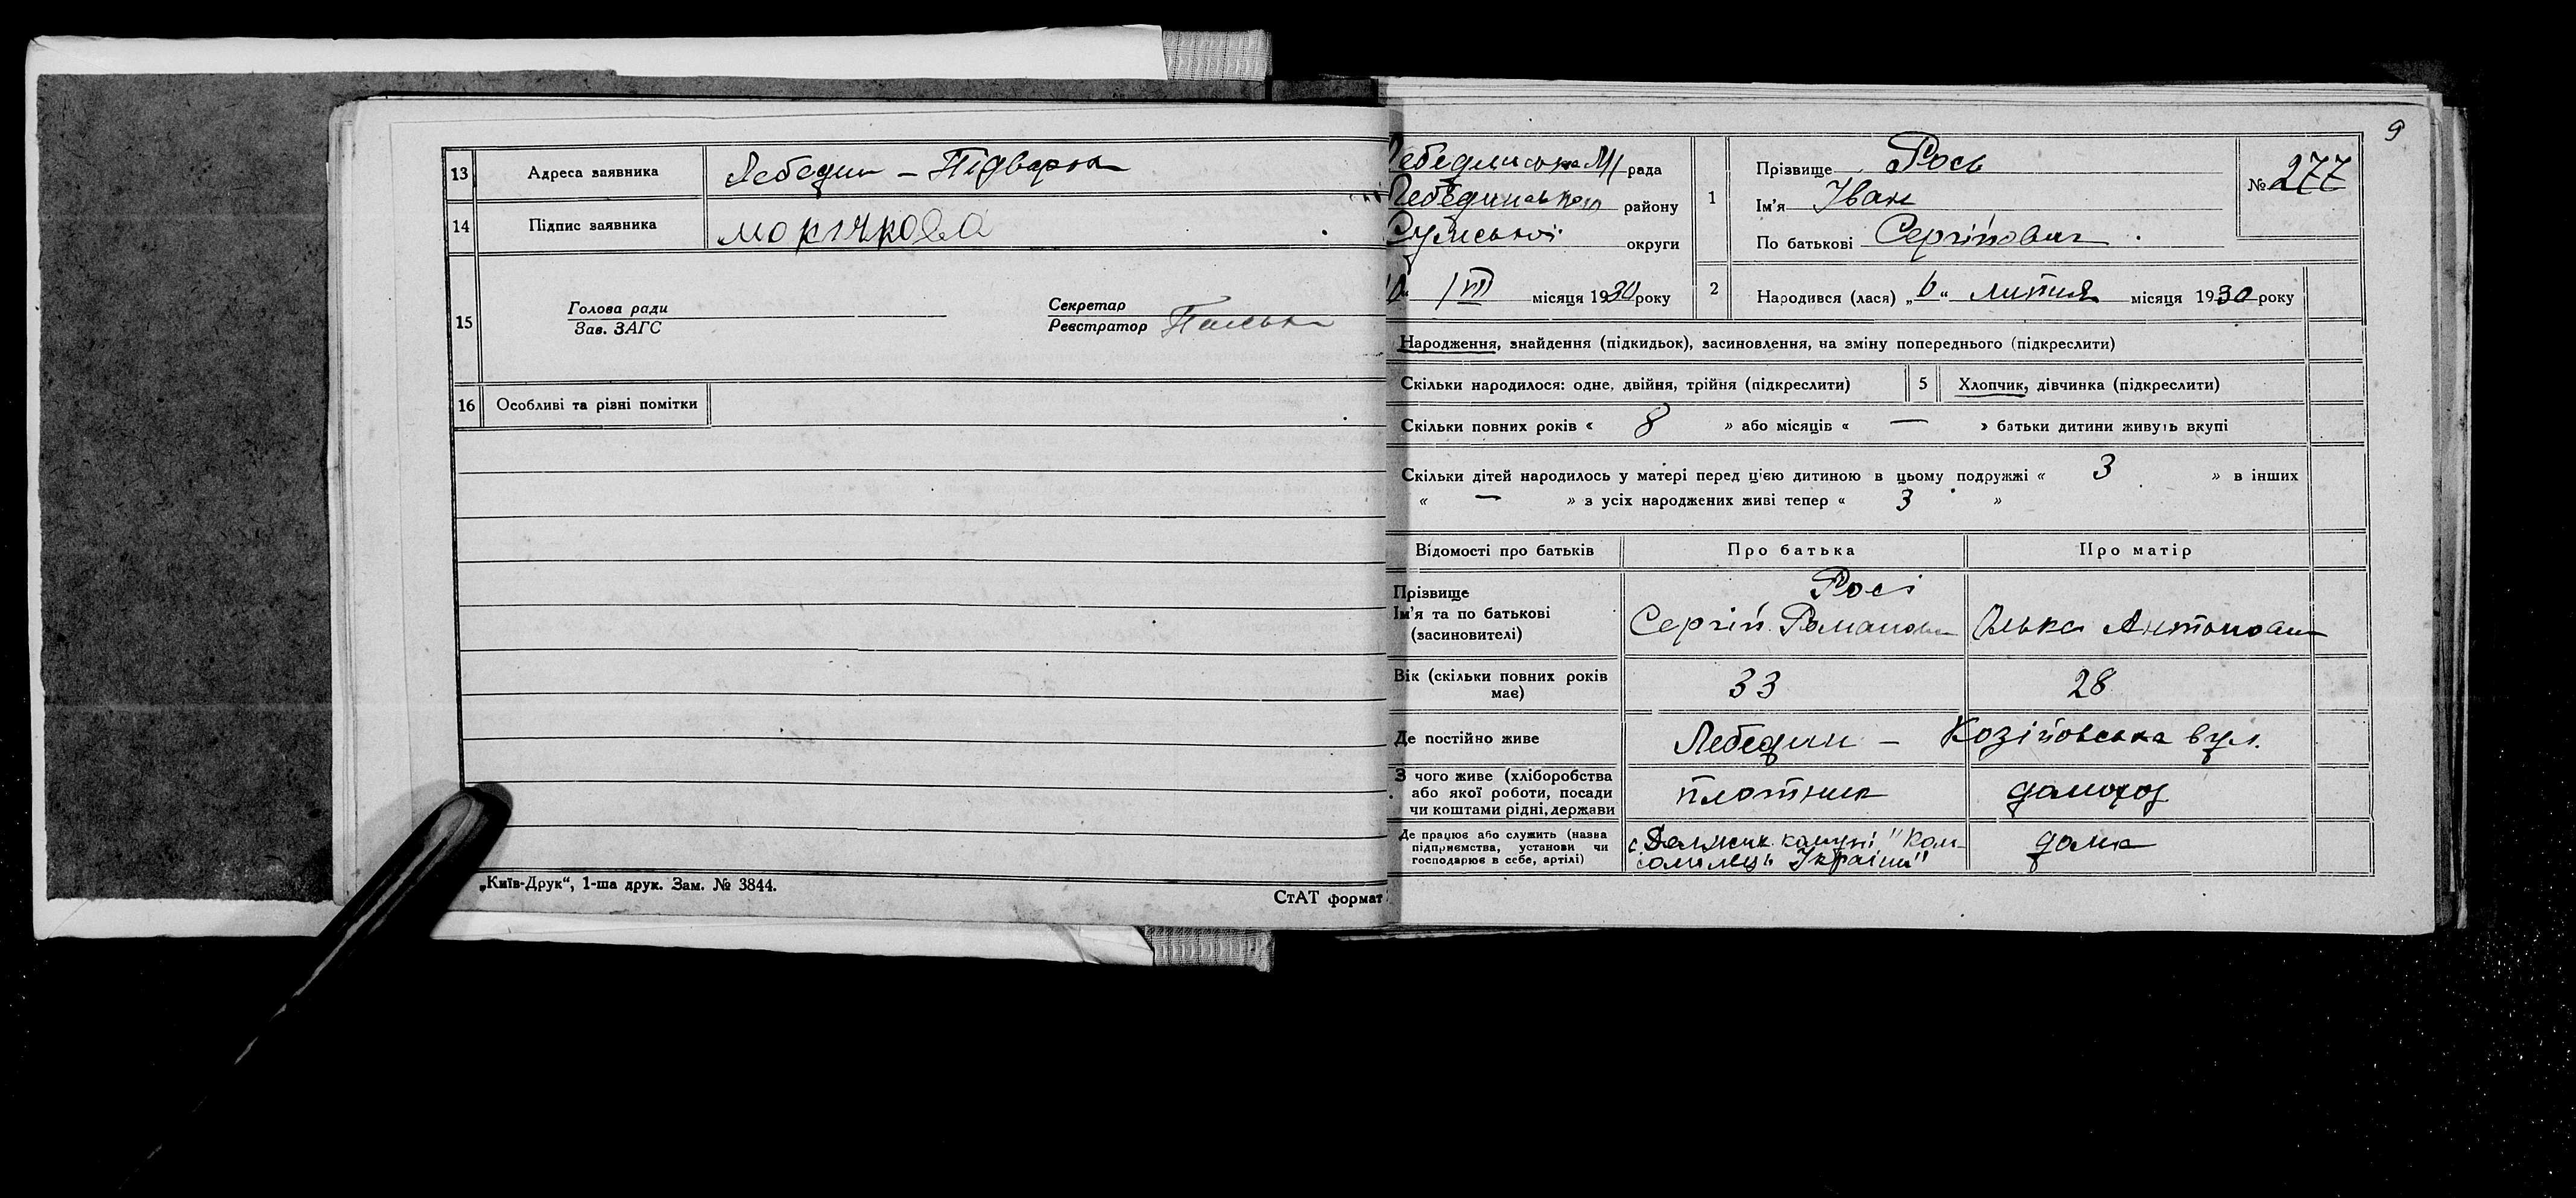 13 Адреса заявника Лебедин – Підварок
14 Підпис заявника
15 Голова ради
Зав. ЗАГС
Секретар
Реєстратор
16 Особливі та різні помітки
„Київ-Друк“, 1-ша друк. Зам. № 3844.
СтАТ формат
9
Лебединська М рада
Лебединського району
Сумської округи
місяця 1930 року
1 Прізвище Рось
Ім'я Іван
По батькові Сергійович
№ 277
2 Народився (лася) „6“ липня місяця 1930 року
Народження, знайдення (підкидьок), засиновлення, на зміну попереднього (підкреслити)
Скільки народилося: одне, двійня, трійня (підкреслити) 5 Хлопчик, дівчинка (підкреслити)
Скільки повних років « 8 » або місяців « — » батьки дитини живуть вкупі
Скільки дітей народилось у матері перед цією дитиною в цьому подружжі « 3 » в інших
« — » з усіх народжених живі тепер « 3 »
Відомості про батьків Про батька Про матір
Прізвище Росі
Ім'я та по батькові Сергій Романович Олька Антонович
(засиновителі)
Вік (скільки повних років має) 33 28
Де постійно живе Лебедин – Козіївська вул.
З чого живе (хліборобства
або якої роботи, посади
чи коштами рідні, держави плотник домогод
Де працює або служить (назва
підприємства, установи чи
господарює в себе, артілі)
комуні "Ком-
сомолець України" дома